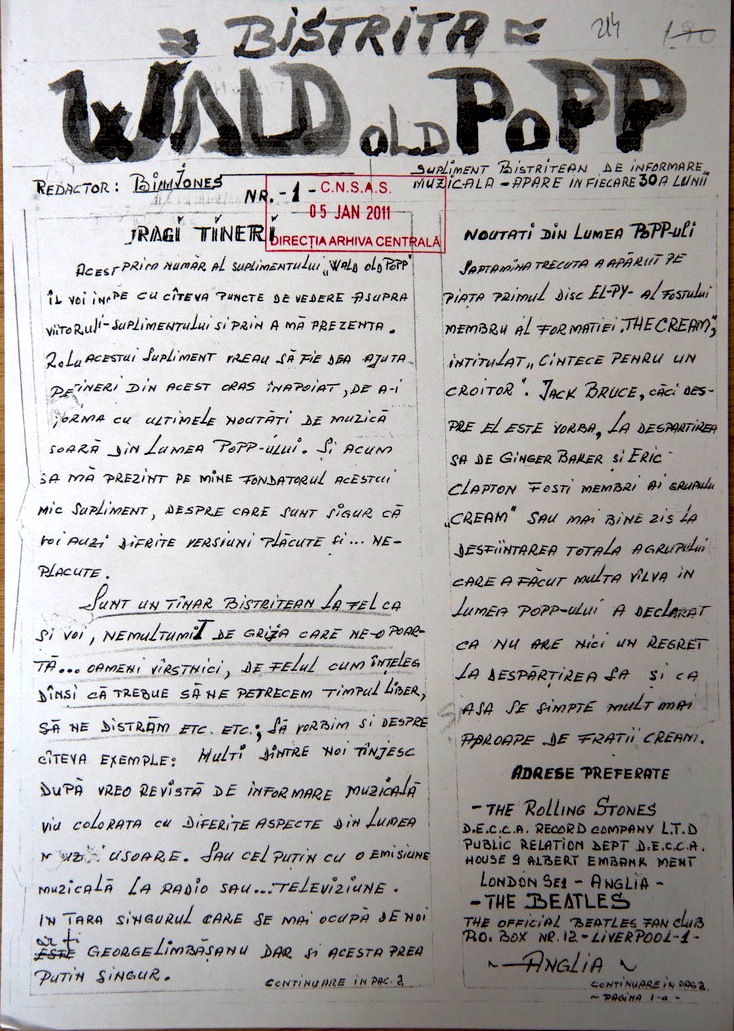 BISTRITA
214
190
WALD OLD POPP
SUPLIMENT BISTRITEAN DE INFORMARE
MUZICALA - APARE IN FIECARE 30 A LUNII
REDACTOR: BIMJONES
NR. - 1 -
C.N.S.A.S.
05 JAN 2011
DIRECȚIA ARHIVA CENTRALĂ
DRAGI TINERI
ACEST PRIM NUMĂR AL SUPLIMENTULUI „WALD OLD POPP"
ÎL VOI ÎNCEPE CU CÎTEVA PUNCTE DE VEDERE ASUPRA
VIITORULI-SUPLIMENTULUI SI PRIN A MĂ PREZENTA.
ROLU ACESTUI SUPLIMENT VREAU SĂ FIE DEA AJUTA
PE TINERI DIN ACEST ORAS ÎNAPOIAT, DE A-I
FORMA CU ULTIMELE NOUTĂTI DE MUZICĂ
SOARĂ DIN LUMEA POPP-ULUI. SI ACUM
SA MĂ PREZINT PE MINE FONDATORUL ACESTUI
MIC SUPLIMENT, DESPRE CARE SUNT SIGUR CĂ
VOI AUZI DIFRITE VERSIUNI PLĂCUTE SI... NE-
PLACUTE.
SUNT UN TÎNAR BISTRITEAN LA FEL CA
SI VOI, NEMULTUMIT DE GRIJA CARE NE-O POAR-
TĂ... OAMENI VÎRSTNICI, DE FELUL CUM ÎNTELEG
DÎNSI CĂ TREBUE SĂ NE PETRECEM TIMPUL LIBER,
SĂ NE DISTRĂM ETC. ETC.; SĂ VORBIM SI DESPRE
CÎTEVA EXEMPLE: MULTI DINTRE NOI TÎNJESC
DUPĂ VREO REVISTĂ DE INFORMARE MUZICALĂ
VIU COLORATA CU DIFERITE ASPECTE DIN LUMEA
MUZICI USOARE. SAU CEL PUTIN CU O EMISIUNE
MUZICALĂ LA RADIO SAU... TELEVIZIUNE.
IN TARA SINGURUL CARE SE MAI OCUPĂ DE NOI
ar fi
ESTE GEORGE LIMBĂSANU DAR SI ACESTA PREA
PUTIN SINGUR.
CONTINUARE IN PAG. 2
NOUTATI DIN LUMEA POPP-ULI
SAPTAMÎNA TRECUTA A APĂRUT PE
PIATA PRIMUL DISC EL-PY- AL FOSTULUI
MEMBRU AL FORMATIEI „THE CREAM",
INTITULAT „CINTECE PENRU UN
CROITOR". JACK BRUCE, CĂCI DES-
PRE EL ESTE VORBA, LA DESPARTIREA
SA DE GINGER BAKER SI ERIC
CLAPTON FOSTI MEMBRI AI GRUPULUI
„CREAM" SAU MAI BINE ZIS LA
DESFIINTAREA TOTALA A GRUPULUI
CARE A FĂCUT MULTA VILVA IN
LUMEA POPP-ULUI A DECLARAT
CA NU ARE NICI UN REGRET
LA DESPĂRTIREA SA SI CA
ASA SE SIMPTE MULT MAI
APROAPE DE FRATII CREAM.
ADRESE PREFERATE
- THE ROLLING STONES
D.E.C.C.A. RECORD COMPANY L.T.D
PUBLIC RELATION DEPT D.E.C.C.A.
HOUSE 9 ALBERT EMBANK MENT
LONDON SE1 - ANGLIA -
- THE BEATLES
THE OFFICIAL BEATLES FAN CLUB
P.O. BOX NR. 12 - LIVERPOOL - 1 -
~ ANGLIA ~
CONTINUARE IN PAG 2
~ PAGINA 1-a -